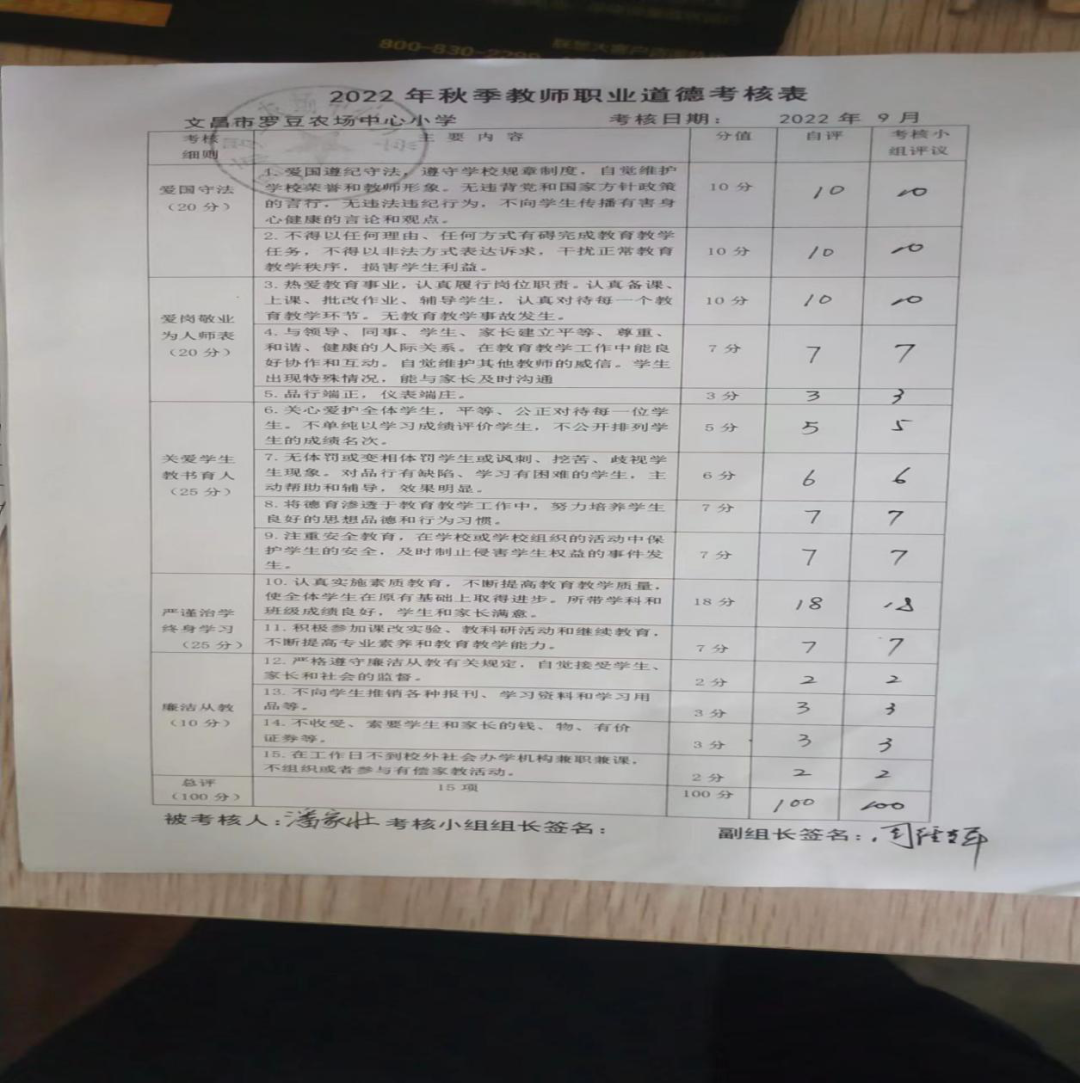 800-830-22
2022 年秋季教师职业道德考核表
文昌市罗豆农场中心小学 考核日期: 2022 年 9 月
考核细则 主 要 内 容 分值 自评 考核小组评议
爱国守法
（20 分）
1. 爱国遵纪守法，遵守学校规章制度，自觉维护
学校荣誉和教师形象。无违背党和国家方针政策
的言行，无违法违纪行为，不向学生传播有害身
心健康的言论和观点。
10 分 10 10
2. 不得以任何理由、任何方式有碍完成教育教学
任务，不得以非法方式表达诉求，干扰正常教育
教学秩序，损害学生利益。
10 分 10 10
爱岗敬业
为人师表
（20 分）
3. 热爱教育事业，认真履行岗位职责。认真备课、
上课、批改作业、辅导学生，认真对待每一个教
育教学环节。无教育教学事故发生。
10 分 10 10
4. 与领导、同事、学生、家长建立平等、尊重、
和谐、健康的人际关系。在教育教学工作中能良
好协作和互动。自觉维护其他教师的威信。学生
出现特殊情况，能与家长及时沟通
7 分 7 7
5. 品行端正，仪表端庄。 3 分 3 3
关爱学生
教书育人
（25 分）
6. 关心爱护全体学生，平等、公正对待每一位学
生。不单纯以学习成绩评价学生，不公开排列学
生的成绩名次。
5 分 5 5
7. 无体罚或变相体罚学生或讽刺、挖苦、歧视学
生现象。对品行有缺陷、学习有困难的学生，主
动帮助和辅导，效果明显。
6 分 6 6
8. 将德育渗透于教育教学工作中，努力培养学生
良好的思想品德和行为习惯。
7 分 7 7
9. 注重安全教育，在学校或学校组织的活动中保
护学生的安全，及时制止侵害学生权益的事件发
生。
7 分 7 7
严谨治学
终身学习
（25 分）
10. 认真实施素质教育，不断提高教育教学质量，
使全体学生在原有基础上取得进步。所带学科和
班级成绩良好，学生和家长满意。
18 分 18 18
11. 积极参加课改实验、教科研活动和继续教育，
不断提高专业素养和教育教学能力。
7 分 7 7
廉洁从教
（10 分）
12. 严格遵守廉洁从教有关规定，自觉接受学生、
家长和社会的监督。
2 分 2 2
13. 不向学生推销各种报刊、学习资料和学习用
品等。
3 分 3 3
14. 不收受、索要学生和家长的钱、物、有价
证券等。
3 分 3 3
15. 在工作日不到校外社会办学机构兼职兼课，
不组织或者参与有偿家教活动。
2 分 2 2
总评
（100 分）
15 项 100 分 100 100
被考核人:潘家壮 考核小组组长签名: 副组长签名: